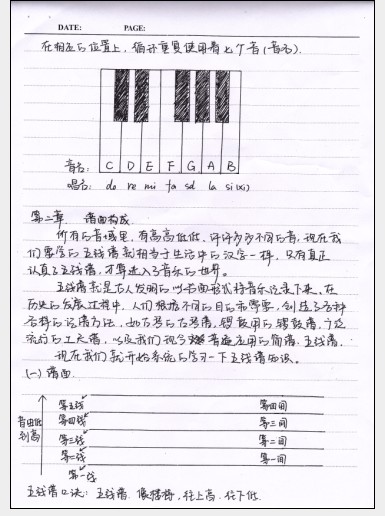 DATE: PAGE:
在相应的位置上，循环重复使用着七个音(音名).
音名: C D E F G A B
唱名: do re mi fa sol la si(xi)
第二章 谱面构成.
所有的音域里,有高高低低,许许多多不同的音,现在我
们要学的五线谱就相当于生活中的汉字一样,只有真正
认真了五线谱,才算进入了音乐的世界.
五线谱就是古人发明的以书面形式将音乐记录下来.在
历史的发展过程中,人们根据不同的目的和需要,创造了各种
各样的记谱方法,如古琴的古琴谱,锣鼓用的锣鼓谱,广泛
流行的工尺谱,以及我们现今普遍应用的简谱、五线谱.
现在我们就开始系统的学习一下五线谱知识.
(一)谱面.
音由低
到高
第五线 第四间
第四线 第三间
第三线 第二间
第二线 第一间
第一线
五线谱口诀: 五线谱,像楼梯,往上高,往下低.